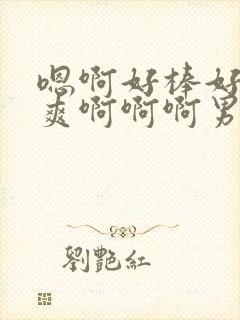 嗯啊好棒好
爽啊啊啊男
劉艷紅